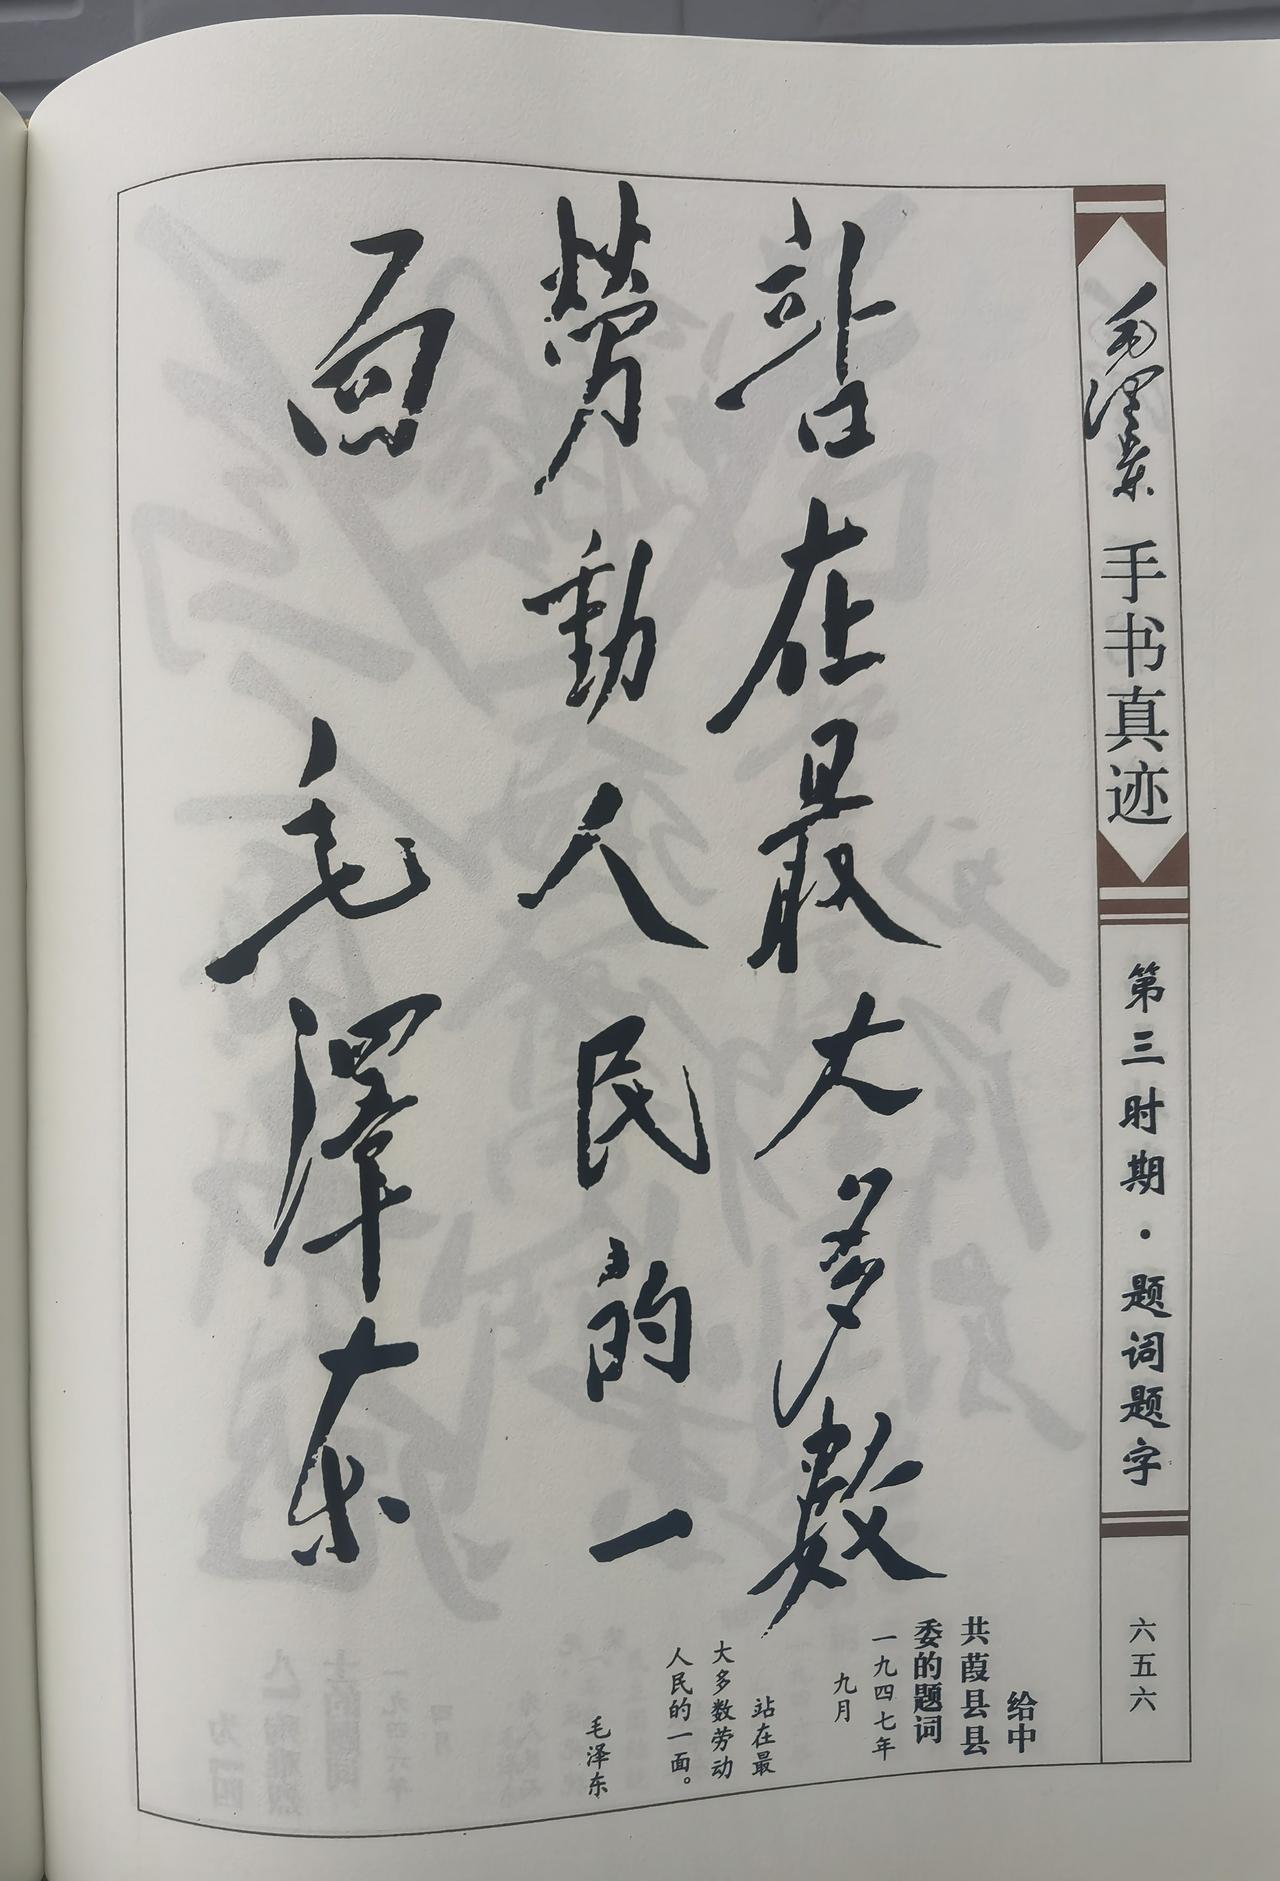 毛泽东 手书真迹
第三时期·题词题字
六五六
站在最大多數
劳動人民的一
面
毛澤东
给中
共葭县县
委的题词
一九四七年
九月
站在最
大多数劳动
人民的一面。
毛泽东